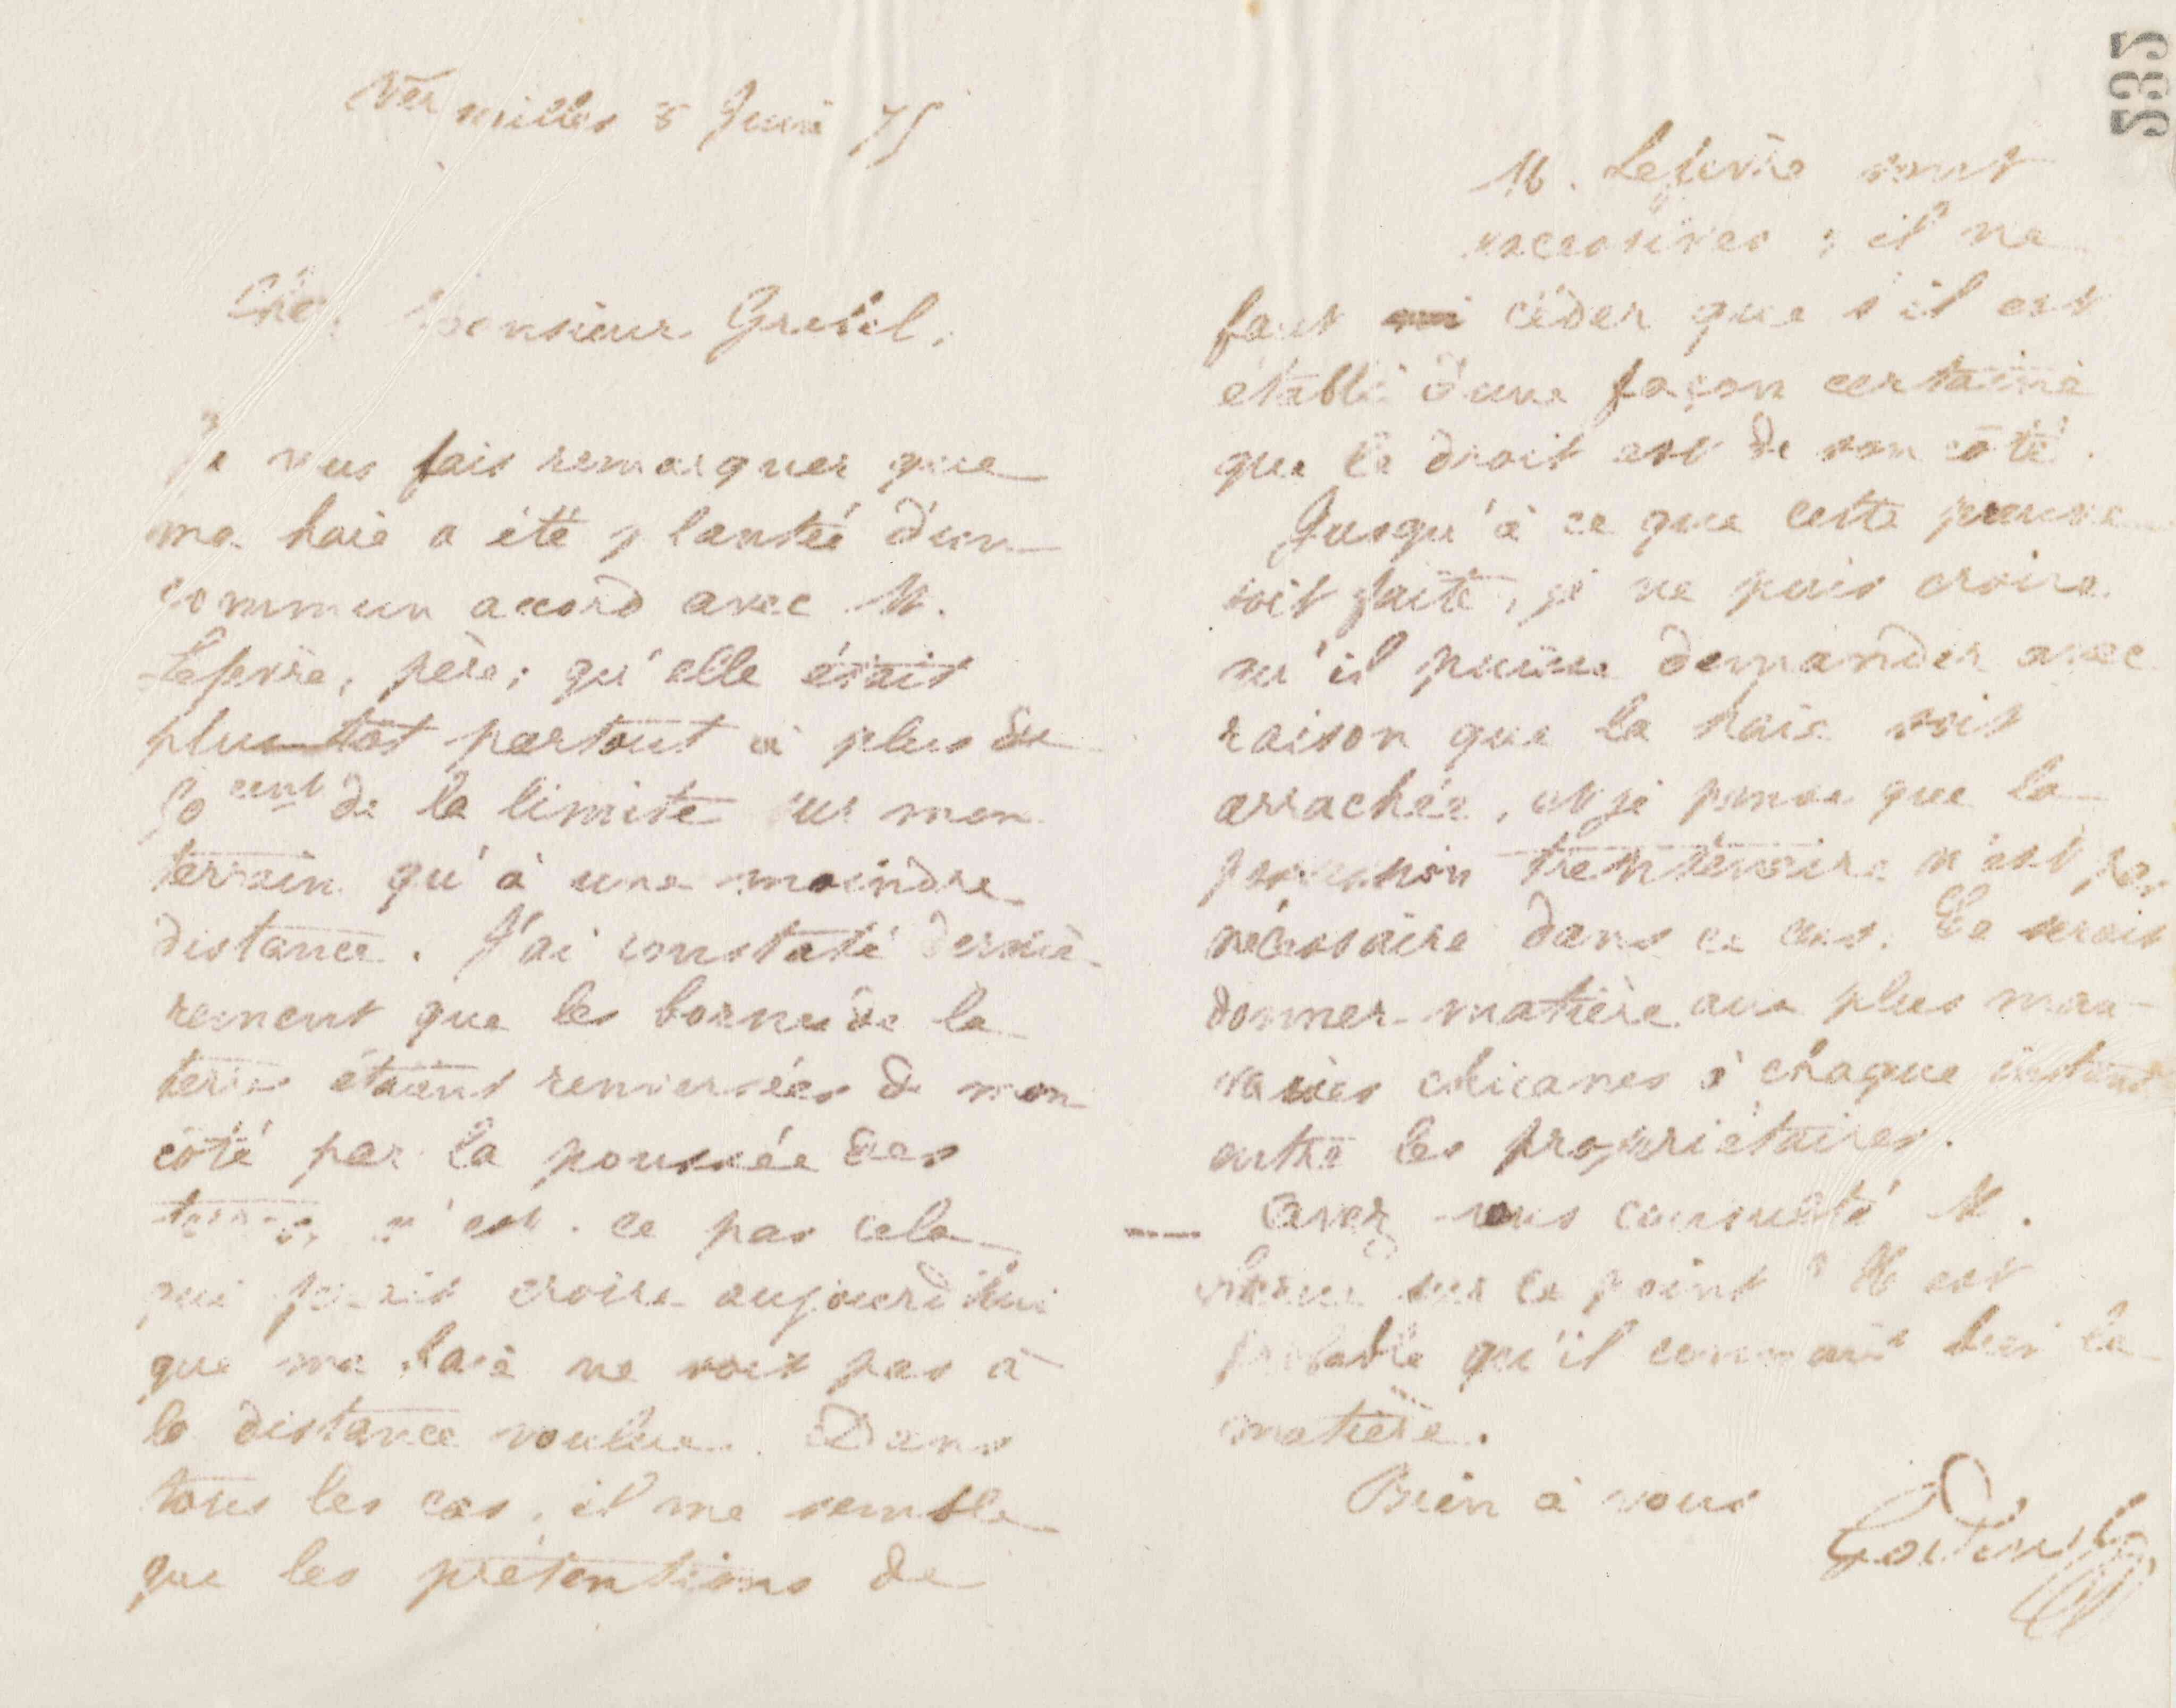 Versailles 8 Juin 75
Cher Monsieur Grebel,
Je vous fais remarquer que
ma haie a été plantée d'un
commun accord avec M.
Lefevre, père; qu'elle était
plustot partout à plus de
50 cent de la limite sur mon
terrain qu'à une moindre
distance. J'ai constaté derniè-
rement que les bornes de la
terre étaient renversées de mon
côté par la poussée des
terres, n'est-ce pas cela
qui ferait croire aujourd'hui
que ma haie ne soit pas à
la distance voulue. Dans
tous les cas, il me semble
que les prétentions de
535
M. Lefevre sont
excessives; il ne
faut céder que s'il est
établi d'une façon certaine
que le droit est de son côté.
Jusqu'à ce que cette preuve
soit faite, je ne puis croire
qu'il puisse demander avec
raison que la haie soit
arrachée, et je pense que la
possession trentenaire n'est pas
nécessaire dans ce cas. Ce serait
donner matière aux plus mau-
vaises chicanes à chaque instant
entre les propriétaires.
Avez vous consulté M.
sur ce point? Il est
probable qu'il connait bien la
matière.
Bien à vous
Godin